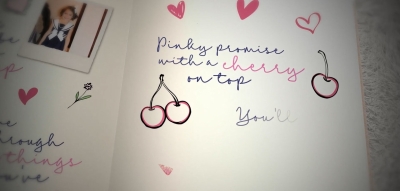 Pinky promise
with a cherry
on top
You'll
through
things